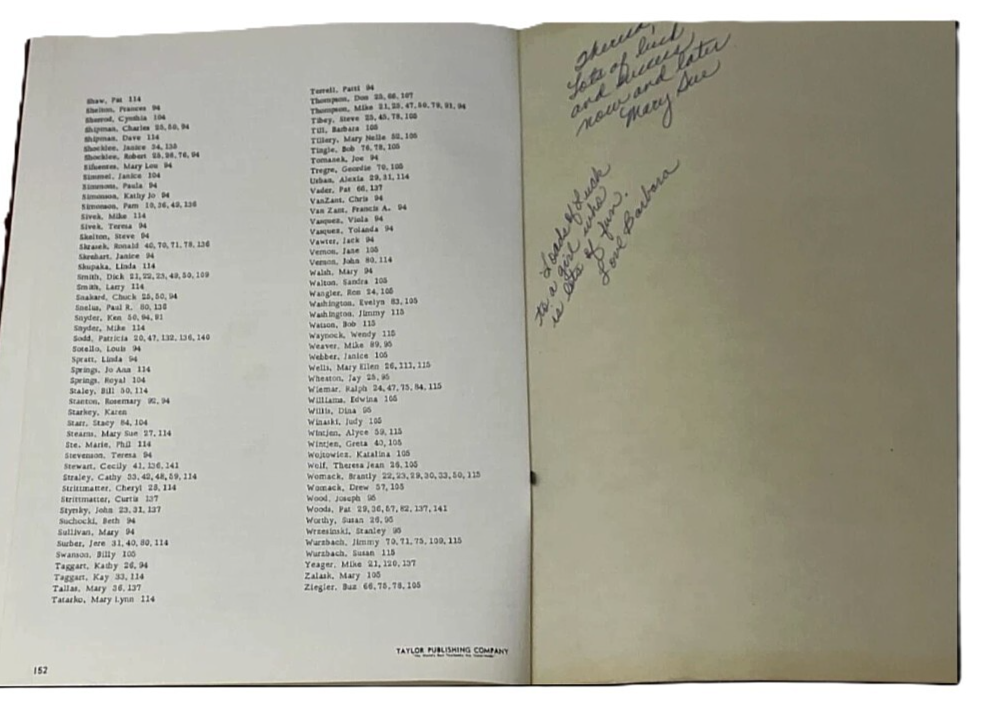 Shaw, Pat 114
Shelton, Frances 94
Sherrod, Cynthia 104
Shipman, Charles 25,50,94
Shipman, Dave 114
Shocklee, Janice 34,136
Shocklee, Robert 25,28,76,94
Sifuentes, Mary Lou 94
Simmel, Janice 104
Simmons, Paula 94
Simonson, Kathy Jo 94
Simonson, Pam 19,36,49,136
Sivek, Mike 114
Sivek, Teresa 94
Skelton, Steve 94
Skrasek, Ronald 40,70,71,78,136
Skrehart, Janice 94
Skupaka, Linda 114
Smith, Dick 21,22,23,49,50,109
Smith, Larry 114
Snakard, Chuck 25,50,94
Snelus, Paul R. 80,136
Snyder, Ken 50,94,81
Snyder, Mike 114
Sodd, Patricia 20,47,132,136,140
Sotello, Louis 94
Spratt, Linda 94
Springs, Jo Ann 114
Springs, Royal 104
Staley, Bill 50,114
Stanton, Rosemary 92,94
Starkey, Karen
Starr, Stacy 84,104
Stearns, Mary Sue 27,114
Ste. Marie, Phil 114
Stevenson, Teresa 94
Stewart, Cecily 41,136,141
Straley, Cathy 33,42,48,59,114
Strittmatter, Cheryl 28,114
Strittmatter, Curtis 137
Styrsky, John 23,31,137
Suchocki, Beth 94
Sullivan, Mary 94
Surber, Jere 31,40,80,114
Swanson, Billy 105
Taggart, Kathy 26,94
Taggart, Kay 33,114
Tallas, Mary 36,137
Tatarko, Mary Lynn 114
Terrell, Patti 94
Thompson, Don 25,66,107
Thompson, Mike 21,25,47,50,78,91,94
Tibey, Steve 23,45,78,105
Till, Barbara 105
Tillery, Mary Nelle 52,105
Tingle, Bob 76,78,105
Tomanek, Joe 94
Tregre, Geordie 70,105
Urban, Alexia 29,31,114
Vader, Pat 66,137
VanZant, Chris 94
Van Zant, Francis A. 94
Vasquez, Viola 94
Vasquez, Yolanda 94
Vawter, Jack 94
Vernon, Jane 105
Vernon, John 80,114
Walsh, Mary 94
Walton, Sandra 105
Wangler, Ron 24,105
Washington, Evelyn 83,105
Washington, Jimmy 115
Watson, Bob 115
Waynock, Wendy 115
Weaver, Mike 89,95
Webber, Janice 105
Wells, Mary Ellen 26,111,115
Wheaton, Jay 25,95
Wiemar, Ralph 24,47,75,84,115
Williams, Edwina 105
Willis, Dina 95
Winaski, Judy 105
Wintjen, Alyce 59,115
Wintjen, Greta 40,105
Wojtowicz, Katalina 105
Wolf, Theresa Jean 26,105
Womack, Brantly 22,23,29,30,33,50,115
Womack, Drew 57,105
Wood, Joseph 95
Woods, Pat 29,36,57,62,137,141
Worthy, Susan 26,95
Wrzesinski, Stanley 95
Wurzbach, Jimmy 70,71,75,109,115
Wurzbach, Susan 115
Yeager, Mike 21,120,137
Zalask, Mary 105
Ziegler, Buz 66,75,78,105
TAYLOR PUBLISHING COMPANY
152
Theresa,
Lots of luck
and success
now and later
Mary Sue
Loads of Luck
to a girl who
is lots of fun.
Love Barbara